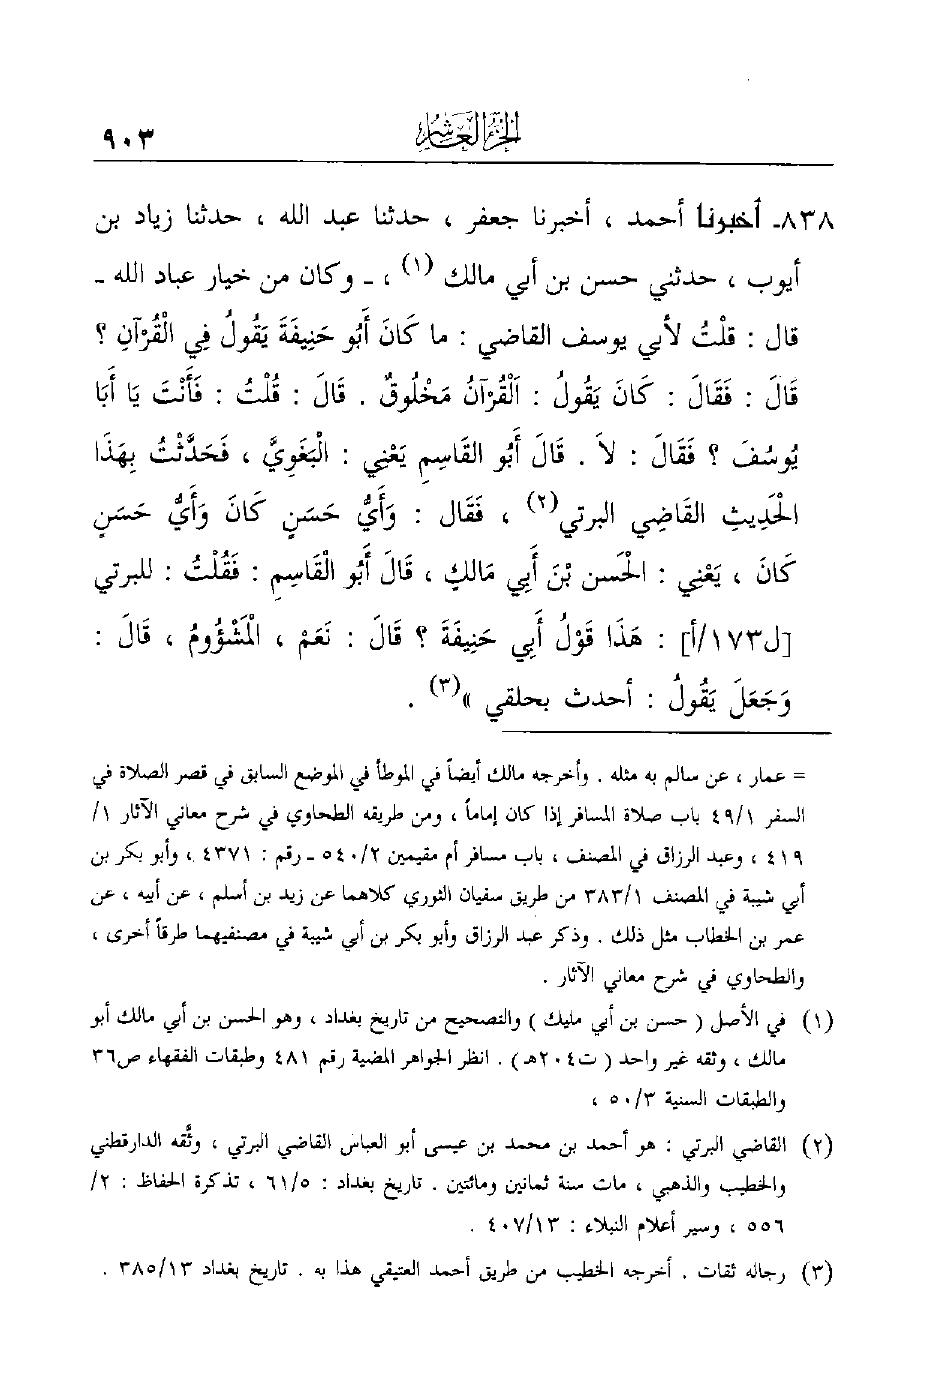 الجزء العاشر
٩٠٣
٨٣٨ـ أخبرنا أحمد ، أخبرنا جعفر ، حدثنا عبد الله ، حدثنا زياد بن
أيوب ، حدثني حسن بن أبي مالك (١) ، ـ وكان من خيار عباد الله ـ
قال : قلْتُ لأبي يوسف القاضي : ما كَانَ أَبُو حَنِيفَةَ يَقُولُ فِي الْقُرْآنِ ؟
قَالَ : فَقَالَ : كَانَ يَقُولُ : اَلْقُرْآنُ مَخْلُوقٌ . قَالَ : قُلْتُ : فَأَنْتَ يَا أَبَا
يُوسُفَ ؟ فَقَالَ : لاَ . قَالَ أَبُو القَاسِمِ يَعْنِي : الْبَغَوِيَّ ، فَحَدَّثْتُ بِهَذَا
الْحَدِيثِ القَاضِي البرتي(٢) ، فَقَال : وَأَيُّ حَسَنٍ كَانَ وَأَيُّ حَسَنٍ
كَانَ ، يَعْنِي : الْحَسن بْنَ أَبِي مَالكٍ ، قَالَ أَبُو الْقَاسِمِ : فَقُلْتُ : للبرتي
[ل١٧٣/أ] : هَذَا قَوْلُ أَبِي حَنِيفَةَ ؟ قَالَ : نَعَمْ ، الْمَشْؤُومُ ، قَالَ :
وَجَعَلَ يَقُولُ : أحدث بحلقي »(٣) .
= عمار ، عن سالم به مثله . وأخرجه مالك أيضاً في الموطأ في الموضع السابق في قصر الصلاة في
السفر ٤٩/١ باب صلاة المسافر إذا كان إماماً ، ومن طريقه الطحاوي في شرح معاني الآثار ١/
٤١٩ ، وعبد الرزاق في المصنف ، باب مسافر أم مقيمين ٥٤٠/٢ ـ رقم : ٤٣٧١ ، وأبو بكر بن
أبي شيبة في المصنف ٣٨٣/١ من طريق سفيان الثوري كلاهما عن زيد بن أسلم ، عن أبيه ، عن
عمر بن الخطاب مثل ذلك . وذكر عبد الرزاق وأبو بكر بن أبي شيبة في مصنفيهما طرقاً أخرى ،
والطحاوي في شرح معاني الآثار .
(١) في الأصل ( حسن بن أبي مليك ) والتصحيح من تاريخ بغداد ، وهو الحسن بن أبي مالك أبو
مالك ، وثقه غير واحد ( ت٢٠٤هـ ) . انظر الجواهر المضية رقم ٤٨١ وطبقات الفقهاء ص٣٦
والطبقات السنية ٥٠/٣ ،
(٢) القاضي البرتي : هو أحمد بن محمد بن عيسى أبو العباس القاضي البرتي ، وثّقه الدارقطني
والخطيب والذهبي ، مات سنة ثمانين ومائتين . تاريخ بغداد : ٦١/٥ ، تذكرة الحفاظ : ٢/
٥٥٦ ، وسير أعلام النبلاء : ٤٠٧/١٣ .
(٣) رجاله ثقات . أخرجه الخطيب من طريق أحمد العتيقي هذا به . تاريخ بغداد ٣٨٥/١٣ .